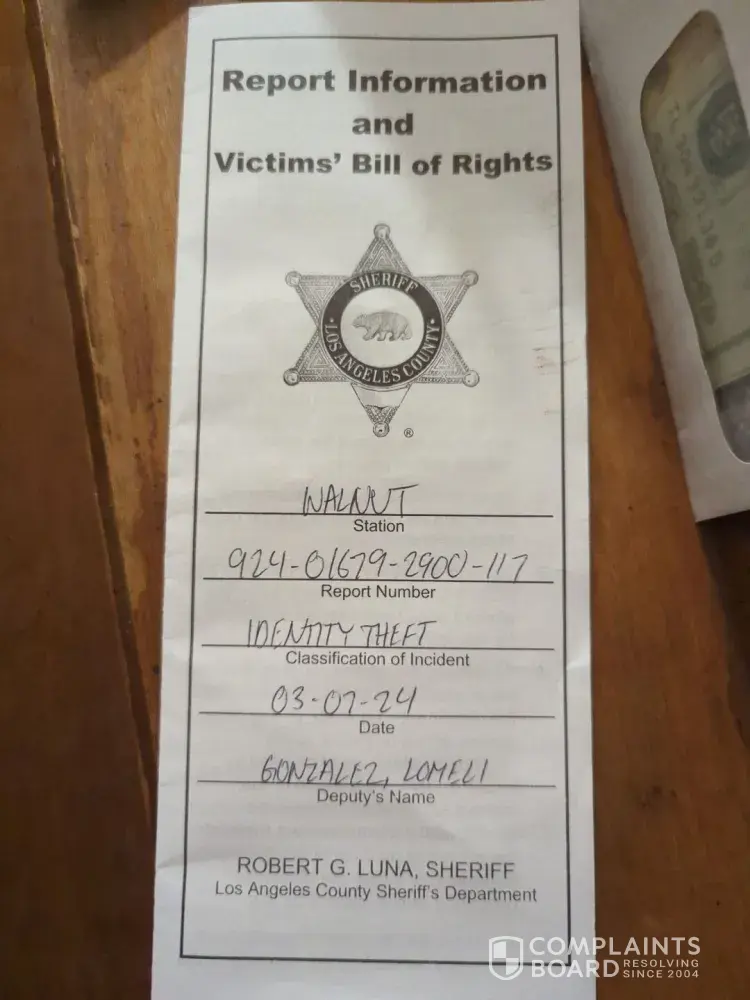 Report Information
and
Victims' Bill of Rights
SHERIFF
LOS ANGELES COUNTY
®
WALNUT
Station
924-01679-2900-117
Report Number
IDENTITY THEFT
Classification of Incident
03-07-24
Date
GONZALEZ, LOMELI
Deputy's Name
ROBERT G. LUNA, SHERIFF
Los Angeles County Sheriff's Department
COMPLAINTS
BOARD RESOLVING SINCE 2004